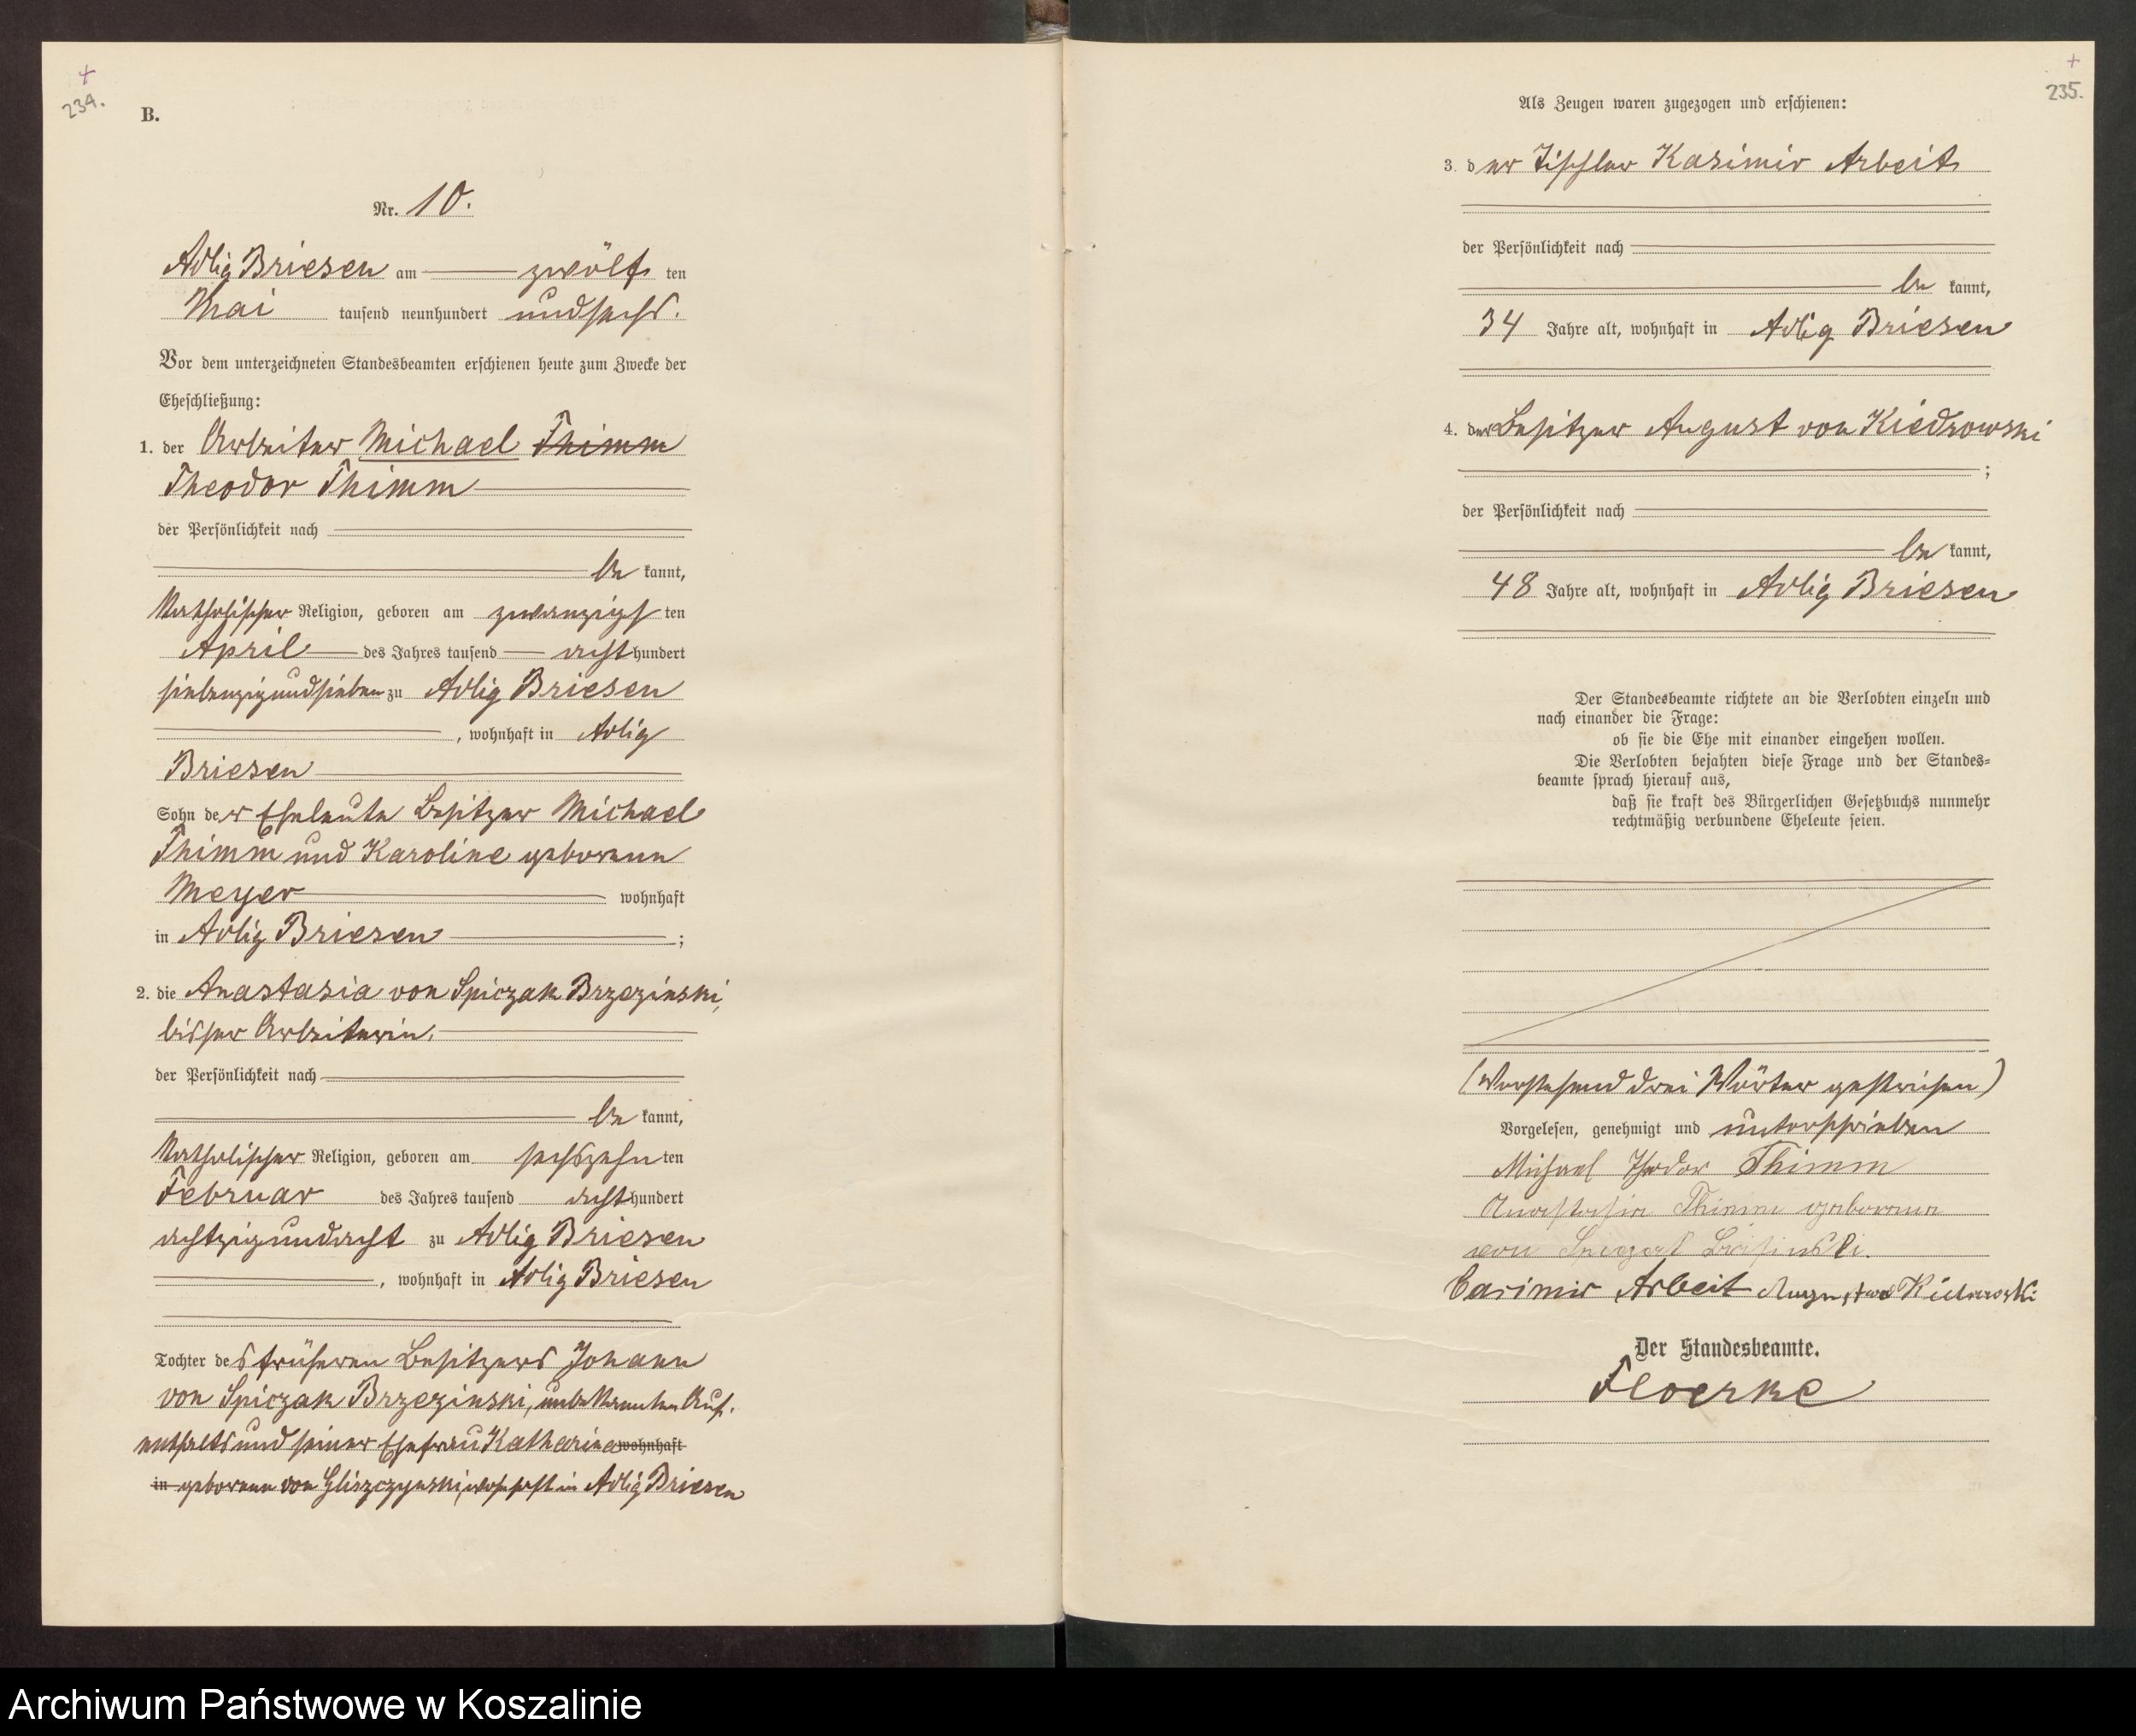 +
234.
B.
Nr. 10.
Adlig Briesen am zwölf ten
Mai tausend neunhundert undsechs.
Vor dem unterzeichneten Standesbeamten erschienen heute zum Zwecke der
Eheschließung:
1. der Arbeiter Michael Thimm
Theodor Thimm
der Persönlichkeit nach
be kannt,
katholischer Religion, geboren am zwanzigs ten
April des Jahres tausend acht hundert
siebenzigundsieben zu Adlig Briesen
, wohnhaft in Adlig
Briesen
Sohn der Eheleute Besitzer Michael
Thimm und Karoline geborenen
Meyer wohnhaft
in Adlig Briesen ;
2. die Anastasia von Spiczak Brzezinski,
bisher Arbeiterin,
der Persönlichkeit nach
be kannt,
katholischer Religion, geboren am sechszehn ten
Februar des Jahres tausend acht hundert
achtzigundacht zu Adlig Briesen
, wohnhaft in Adlig Briesen
Tochter des früheren Besitzers Johann
von Spiczak Brzezinski, unbekannten Auf-
enthalts und seiner Ehefrau Katharina wohnhaft
in geborenen von Gliszczynski, wohnhaft in Adlig Briesen
+
235.
Als Zeugen waren zugezogen und erschienen:
3. der Tischler Kasimir Arbeit
der Persönlichkeit nach
be kannt,
34 Jahre alt, wohnhaft in Adlig Briesen
4. der Besitzer August von Kiedrowski
;
der Persönlichkeit nach
be kannt,
48 Jahre alt, wohnhaft in Adlig Briesen
Der Standesbeamte richtete an die Verlobten einzeln und
nach einander die Frage:
ob sie die Ehe mit einander eingehen wollen.
Die Verlobten bejahten diese Frage und der Standes-
beamte sprach hierauf aus,
daß sie kraft des Bürgerlichen Gesetzbuchs nunmehr
rechtmäßig verbundene Eheleute seien.
(Vorstehend drei Wörter gestrichen)
Vorgelesen, genehmigt und unterschrieben
Michael Theodor Thimm
Anastasia Thimm geborene
von
Casimir Arbeit August von Kiedrowski
Der Standesbeamte.
Floerke
Archiwum Państwowe w Koszalinie